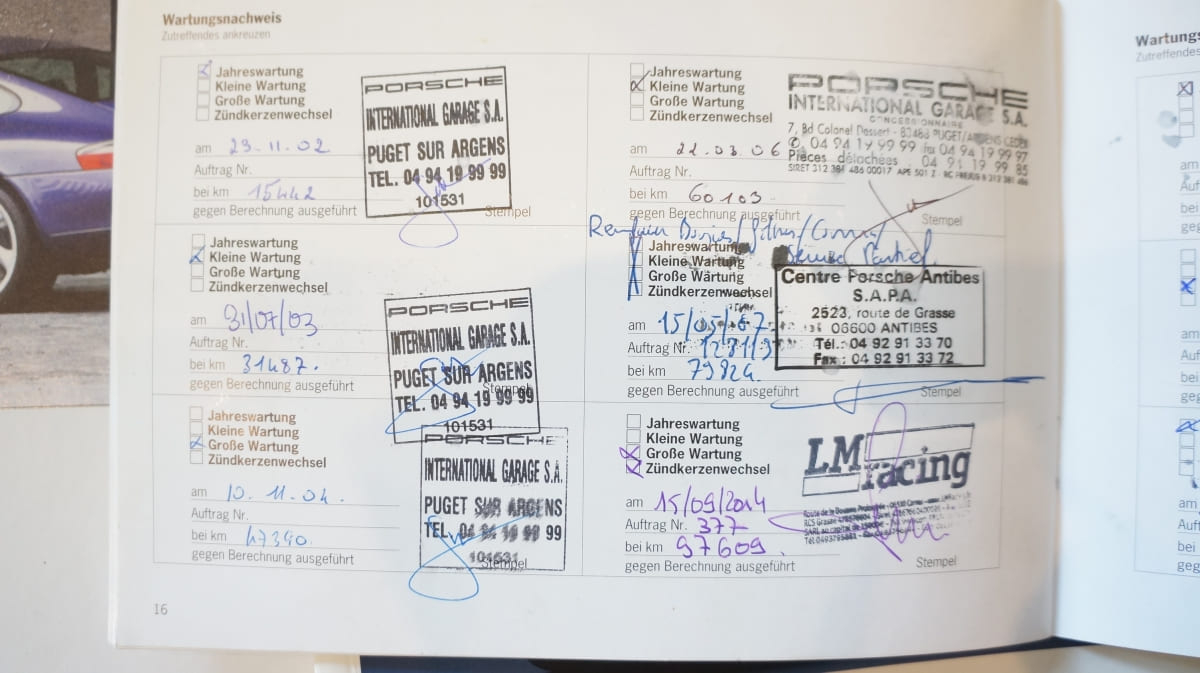 Wartungsnachweis
Zutreffendes ankreuzen
Jahreswartung
Kleine Wartung
Große Wartung
Zündkerzenwechsel
am 23.11.02
Auftrag Nr.
bei km 15442
gegen Berechnung ausgeführt
Stempel
PORSCHE
INTERNATIONAL GARAGE S.A.
PUGET SUR ARGENS
TEL. 04 94 19 99 99
101531
Jahreswartung
Kleine Wartung
Große Wartung
Zündkerzenwechsel
am 31/07/03
Auftrag Nr.
bei km 31487.
gegen Berechnung ausgeführt
Stempel
PORSCHE
INTERNATIONAL GARAGE S.A.
PUGET SUR ARGENS
TEL. 04 94 19 99 99
101531
Jahreswartung
Kleine Wartung
Große Wartung
Zündkerzenwechsel
am 10.11.04.
Auftrag Nr.
bei km 47390.
gegen Berechnung ausgeführt
Stempel
PORSCHE
INTERNATIONAL GARAGE S.A.
PUGET SUR ARGENS
TEL. 04 94 19 99 99
101531
16
Jahreswartung
Kleine Wartung
Große Wartung
Zündkerzenwechsel
am 22.03.06
Auftrag Nr.
bei km 60103
gegen Berechnung ausgeführt
Stempel
PORSCHE
INTERNATIONAL GARAGE S.A.
CONCESSIONNAIRE
7, Bd Colonel Dessert - 83488 PUGET/ARGENS CEDEX
04 94 19 99 99 Fax 04 94 19 99 97
Pièces détachées 04 94 19 99 85
SIRET 312 381 486 00017
Jahreswartung
Kleine Wartung
Große Wartung
Zündkerzenwechsel
am 15/05/07
Auftrag Nr.
bei km 79824.
gegen Berechnung ausgeführt
Stempel
Centre Porsche Antibes
S.A.P.A.
2523, route de Grasse
06600 ANTIBES
Tél.: 04 92 91 33 70
Fax : 04 92 91 33 72
Jahreswartung
Kleine Wartung
Große Wartung
Zündkerzenwechsel
am 15/09/2014
Auftrag Nr. 377
bei km 97609
gegen Berechnung ausgeführt
Stempel
LM racing
Wartungs
Zutreffendes
am
Auf
bei
geg
am
Auf
bei
geg
am
Auf
bei
geg